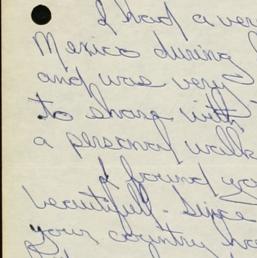 I had a ver
Mexico during
and was very
to share with
a personal walk
I found yo
beautiful. Since
your country ha